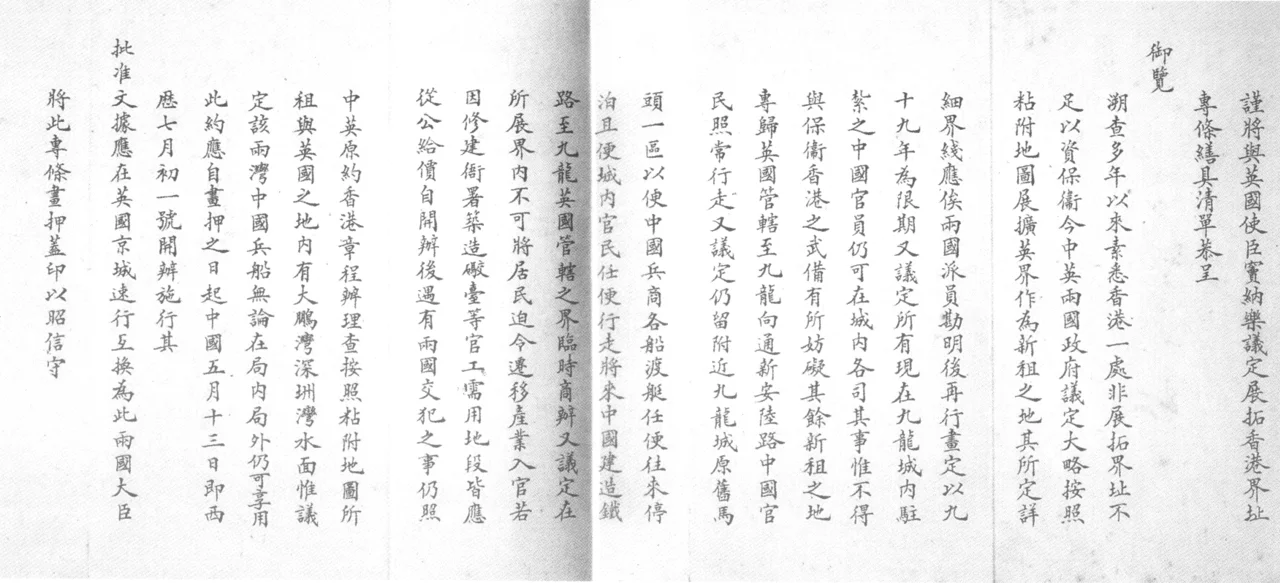 謹將與英國使臣竇納樂議定展拓香港界址
專條繕具清單恭呈
御覽
朔查多年以來素悉香港一處非展拓界址不
足以資保衞今中英兩國政府議定大略按照
粘附地圖展擴英界作為新租之地其所定詳
細界綫應俟兩國派員勘明後再行畫定以九
十九年為限期又議定所有現在九龍城內駐
紮之中國官員仍可在城內各司其事惟不得
與保衞香港之武備有所妨礙其餘新租之地
專歸英國管轄至九龍向通新安陸路中國官
民照常行走又議定仍留附近九龍城原舊馬
頭一區以便中國兵商各船渡艇任便往來停
泊且便城內官民任便行走將來中國建造鐵
路至九龍英國管轄之界臨時商辦又議定在
所展界內不可將居民迫令遷移產業入官若
因修建衙署築造礮臺等官工需用地段皆應
從公給價自開辦後遇有兩國交犯之事仍照
中英原約香港章程辦理查按照粘附地圖所
租與英國之地內有大鵬灣深圳灣水面惟議
定該兩灣中國兵船無論在局內局外仍可享用
此約應自畫押之日起中國五月十三日即西
歷七月初一號開辦施行其
批准文據應在英國京城速行互換為此兩國大臣
將此專條畫押蓋印以昭信守